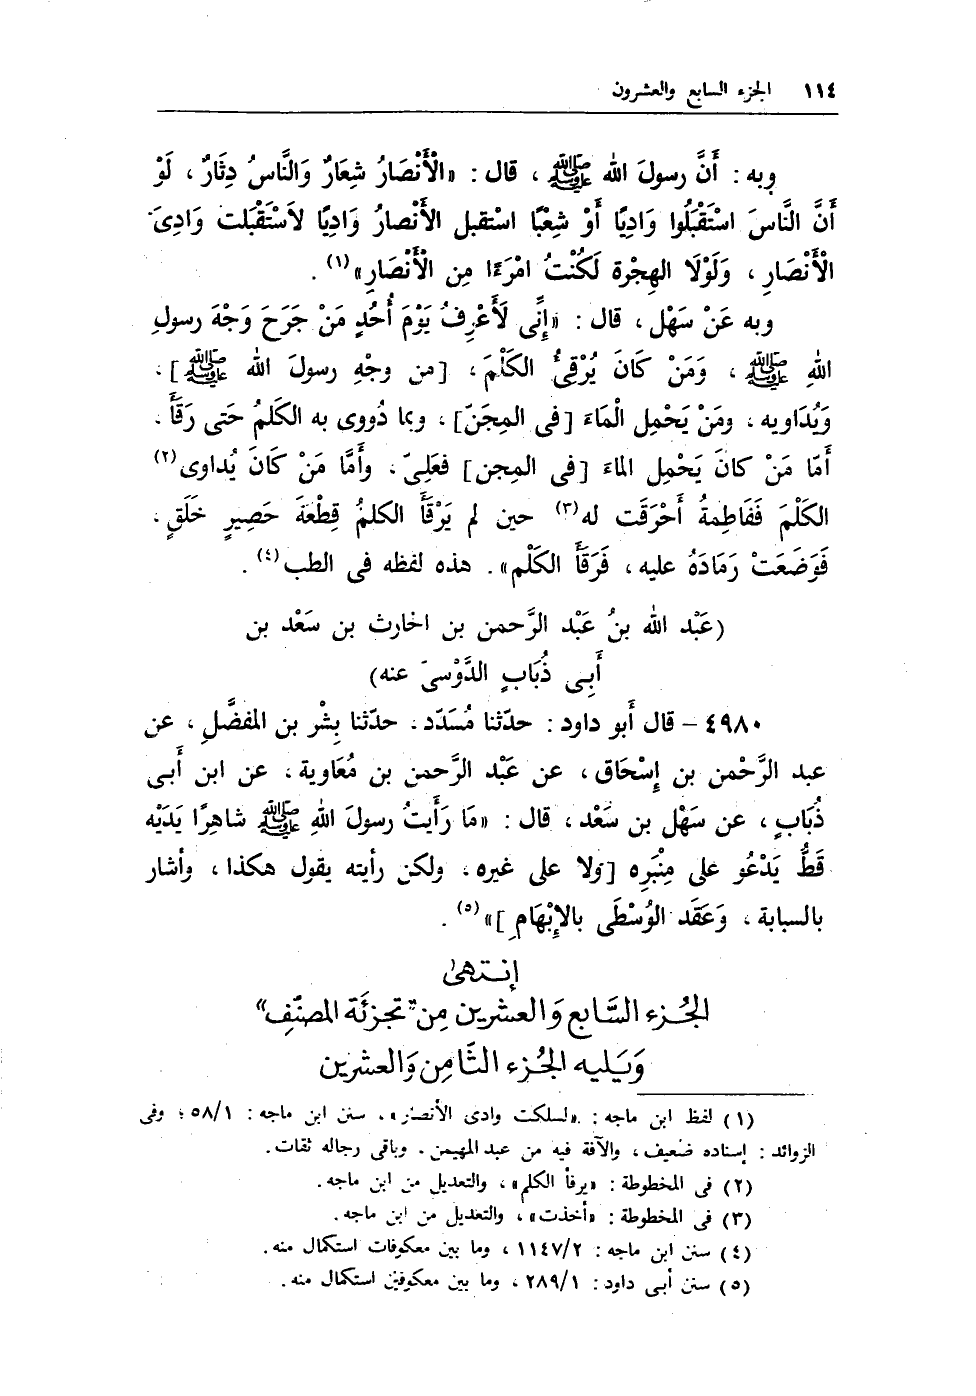 ١١٤ الجزء السابع والعشرون
وبه : أَنَّ رسولَ الله ﷺ ، قال : «الْأَنْصَارُ شِعَارٌ وَالنَّاسُ دِثَارٌ ، لَوْ
أَنَّ النَّاسَ اسْتَقْبَلُوا وَادِيًا أَوْ شِعْبًا اسْتقبل الأَنْصارُ وَادِيًا لاَسْتَقْبَلت وَادِىَ
الْأَنْصَارِ ، وَلَوْلَا الهِجْرة لَكُنْتُ امْرَءًا مِن الْأَنْصَارِ»(١) .
وبه عَنْ سَهْل ، قال : «إِنَّى لَأَعْرِفُ يَوْمَ أُحُدٍ مَنْ جَرَحَ وَجْهَ رسولِ
اللهِ ﷺ ، وَمَنْ كَانَ يُرْقِئُ الكَلْمَ ، [من وجْهِ رسولَ الله ﷺ] ،
وَيُدَاويه ، ومَنْ يَحْمِل الْمَاءَ [فى المِجَنّ] ، وبما دُووى به الكَلمُ حَتى رَقَأَ .
أمّا مَنْ كانَ يَحْمِل الماءَ [فى المِجن] فعَلِىّ ، وأَمَّا مَنْ كَانَ يُداوى(٢)
الكَلْمَ فَفَاطِمةُ أَحْرَقَت له(٣) حين لم يَرْقَأَ الكلمُ قِطْعةَ حَصِيرٍ خَلَقٍ ،
فَوَضَعَتْ رَمَادَهُ عليه ، فَرَقَأَ الكَلْم» . هذه لفظه فى الطب(٤) .
(عَبْد الله بنُ عَبْد الرَّحمن بن الحارث بن سَعْد بن
أَبِى ذُبَابٍ الدَّوْسىّ عنه)
٤٩٨٠ – قال أَبو داود : حدّثنا مُسَدّد ، حدّثنا بِشْر بن المفضَّلِ ، عن
عبد الرَّحْمن بن إِسْحَاق ، عن عَبْد الرَّحمن بن مُعَاوية ، عن ابن أَبى
ذُبَابٍ ، عن سَهْل بن سَعْد ، قال : «مَا رَأَيتُ رسولَ اللهِ ﷺ شاهِرًا يَدَيْه
قَطُّ يَدْعُو على مِنْبَرِه [وَلا على غيره ، ولكن رأيته يقول هكذا ، وأشار
بالسبابة ، وَعَقَد الوُسْطَى بالإِبْهَامِ]»(٥) .
إنتهى
الجُزء السَّابع وَالعشرين مِن "تجزئَة المصنّف"
وَيَليه الجُزء الثَّامِن وَالعشرين
(١) لفظ ابن ماجه : «لسلكت وادى الأنصار» ، سنن ابن ماجه : ٥٨/١ ؛ وفى
الزوائد : إسناده ضعيف ، والآفة فيه من عبد المهيمن . وباقى رجاله ثقات .
(٢) فى المخطوطة : «يرقأ الكلم» ، والتعديل من ابن ماجه .
(٣) فى المخطوطة : «أخذت» ، والتعديل من ابن ماجه .
(٤) سنن ابن ماجه : ١١٤٧/٢ ، وما بين معكوفات استكمال منه .
(٥) سنن أبى داود : ٢٨٩/١ ، وما بين معكوفين استكمال منه .